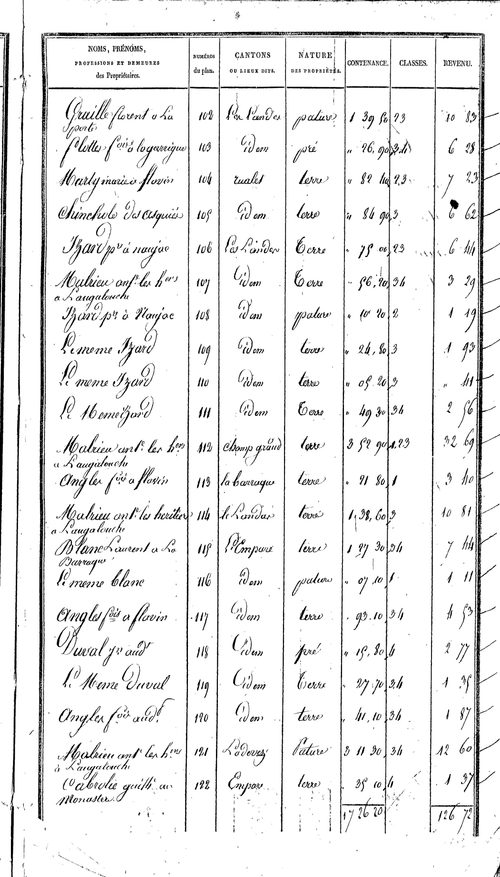 NOMS, PRÉNOMS, PROFESSIONS ET DEMEURES des Propriétaires. NUMÉROS du plan. CANTONS OU LIEUX DITS. NATURE DES PROPRIÉTÉS. CONTENANCE. CLASSES. REVENU.
florent a La 102 Les Landes pature 1 39 50 23 10 83
102
103 idem pré " 26,90 34 6 28
Marty marie a flavin 104 terre " 82 40 23 7 23
105 idem terre " 84 90 3 6 62
Izard pre à naujac 106 Les Landes Terre " 75 00 23 6 44
Malrieu ant. les hers 107 idem Terre " 56,20 34 3 29
a Laugalouche
Izard pre à Naujac 108 idem pature " 10 20 2 1 19
Le meme Izard 109 idem terre " 24,80 3 1 93
Le meme Izard 110 idem terre " 05 20 3 " 41
Le Meme Izard 111 idem Terre " 49 30 34 2 56
Malrieu ant. les hers 112 champ grand terre 3 52 90 123 32 69
a Laugalouche
Angles fois a flavin 113 la barraque terre " 21 80 1 3 40
Malrieu ant. les heritiers 114 le Landas terre 1 38,60 3 10 81
a Laugalouche
Blanc Laurent a La 115 L'Empare terre 1 27 30 34 7 44
Barraque
Le meme blanc 116 idem pature " 07 10 1 1 11
Angles fois a flavin 117 idem terre " 93 10 34 4 53
Duval audt 118 idem pré " 15,80 4 2 77
Le Meme Duval 119 idem Terre " 27,70 34 1 35
Angles fois audt 120 idem terre " 41,10 34 1 87
Malrieu ant. les hers 121 Pature 2 11 30 34 12 60
a Laugalouche
Cabrolie au 122 Empare terre " 35 10 4 1 37
Monastere
17 26 20 126 72